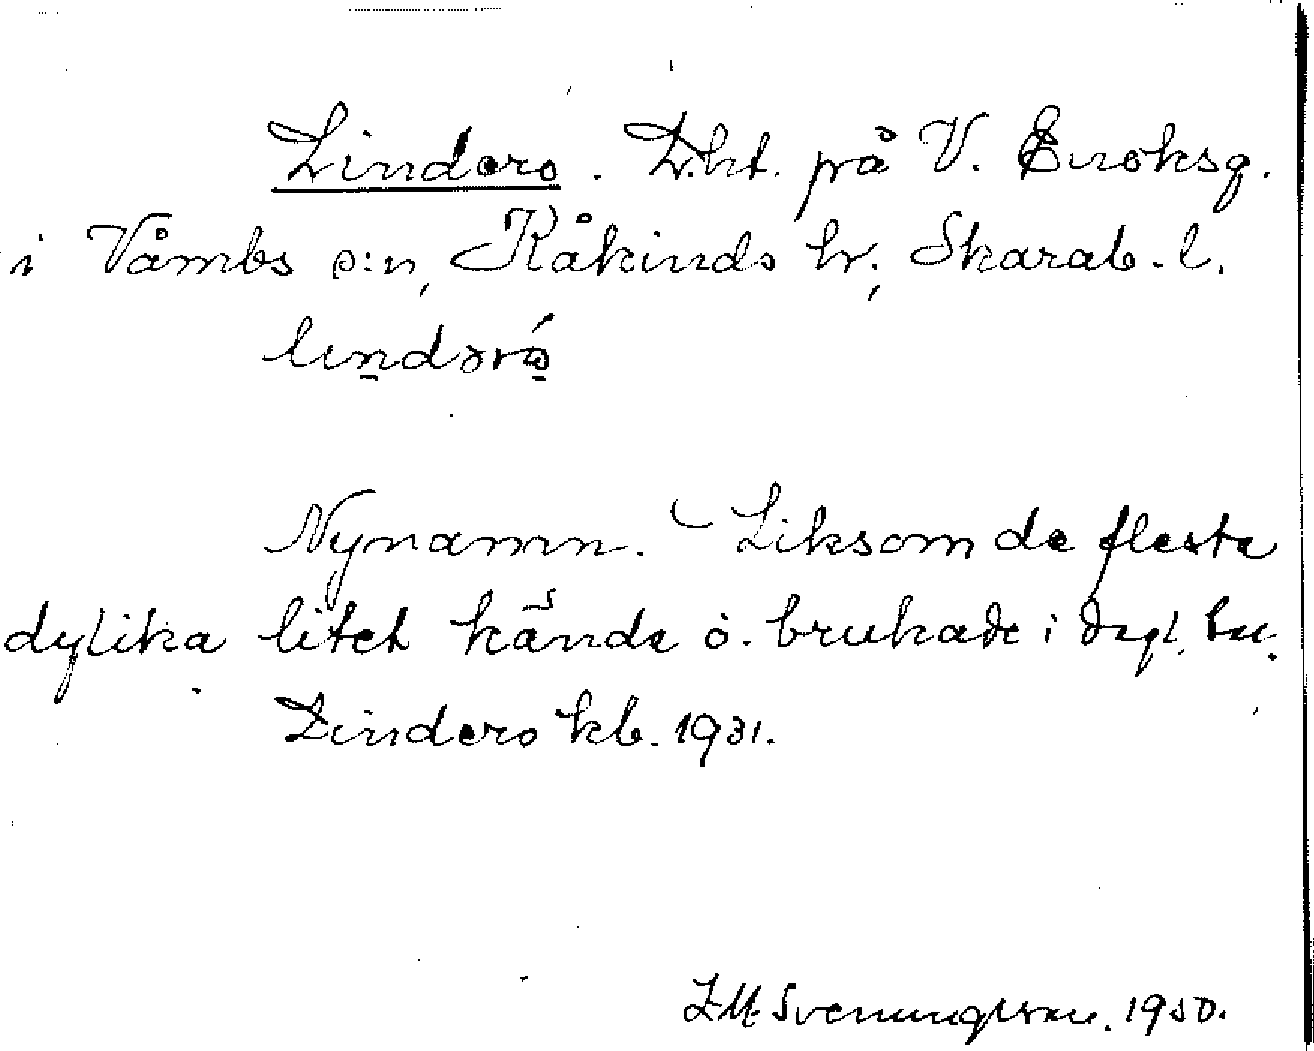 Lindero. Lht. på V. Enoksg.
i Våmbs s:n, Kåkinds hr; Skarab. l.
lindəró
Nynamn. Liksom de flesta
dylika litet kända o. brukade i dagl.
Lindero kb. 1931.
Svenungsson. 1950.